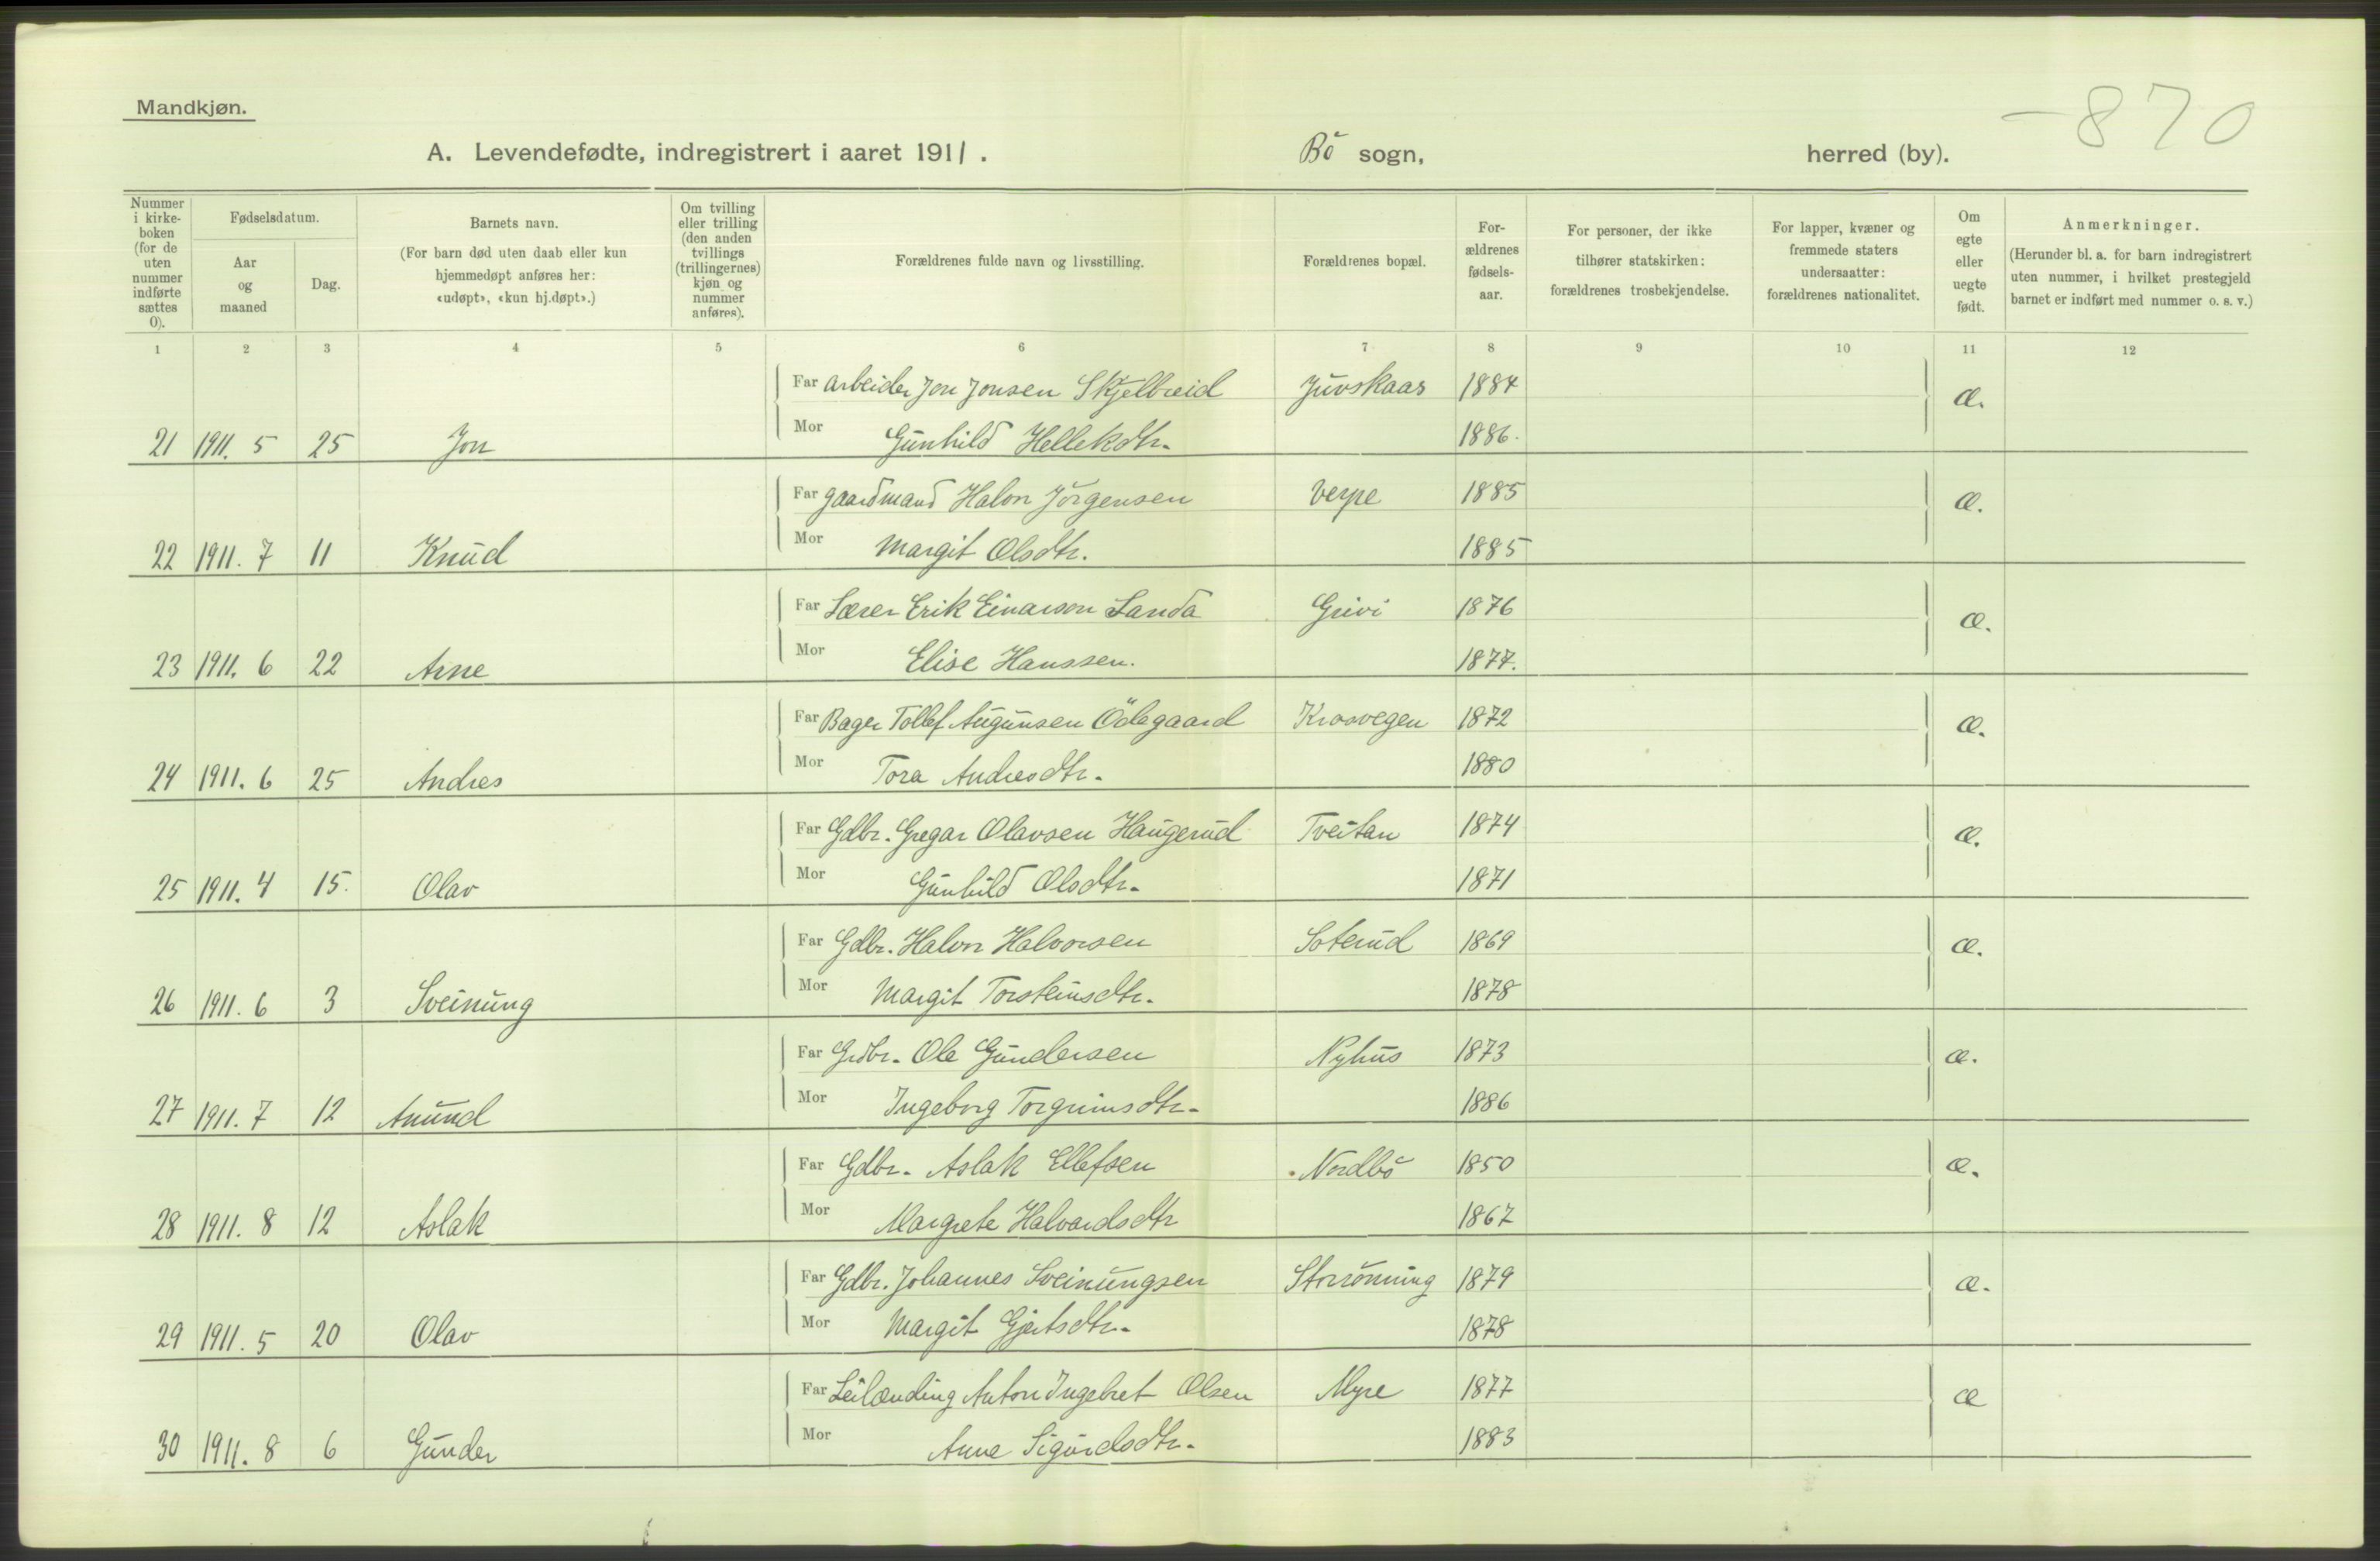 Mandkjøn.
-870
A. Levendefødte, indregistrert i aaret 1911. Bö sogn, herred (by).
Nummer i kirkeboken (for de uten nummer indførte sættes 0).
Fødselsdatum.
Aar og maaned
Dag.
Barnets navn.
(For barn død uten daab eller kun hjemmedøpt anføres her: «udøpt», «kun hj.døpt».)
Om tvilling eller trilling (den anden tvillings (trillingernes) kjøn og nummer anføres).
Forældrenes fulde navn og livsstilling.
Forældrenes bopæl.
Forældrenes fødselsaar.
For personer, der ikke tilhører statskirken: forældrenes trosbekjendelse.
For lapper, kvæner og fremmede staters undersaatter: forældrenes nationalitet.
Om egte eller uegte født.
Anmerkninger.
(Herunder bl. a. for barn indregistrert uten nummer, i hvilket prestegjeld barnet er indført med nummer o. s. v.)
1 2 3 4 5 6 7 8 9 10 11 12
Far arbeider Jon Jonsen Skjelbreid Juvskaas 1884 æ.
21 1911. 5 25 Jon Mor Gunhild Hellekdtr. 1886.
Far gaardmand Halvor Jörgensen Verpe 1885 æ.
22 1911. 7 11 Knud Mor Margit Olsdtr. 1885
Far Lærer Erik Einarson Landa Grivi 1876 æ.
23 1911. 6 22 Arne Mor Elise Hanssen. 1877.
Far Bager Tollef Augunsen Ödegaard Krosvegen 1872 æ.
24 1911. 6 25 Andres Mor Tora Andresdtr. 1880
Far Gdbr. Gregar Olavsen Haugerud Tveitan 1874 æ.
25 1911. 4 15. Olav Mor Gunhild Olsdtr. 1871
Far Gdbr. Halvor Halvorsen Soterud 1869 æ.
26 1911. 6 3 Sveinung Mor Margit Torsteinsdtr. 1878
Far Grdbr. Ole Gundersen Nyhus 1873 æ.
27 1911. 7 12 Anund Mor Ingeborg Torgrimsdtr. 1886
Far Gdbr. Aslak Ellefsen Nordbö 1850 æ.
28 1911. 8 12 Aslak Mor Margrete Halvardsdtr 1867
Far Gdbr. Johannes Sveinungsen Storrönning 1879 æ.
29 1911. 5 20 Olav Mor Margit Gjertsdtr. 1878
Far Leilænding Anton Ingebret Olsen Myre 1877 æ
30 1911. 8 6 Gunder Mor Anne Sigurdsdtr. 1883